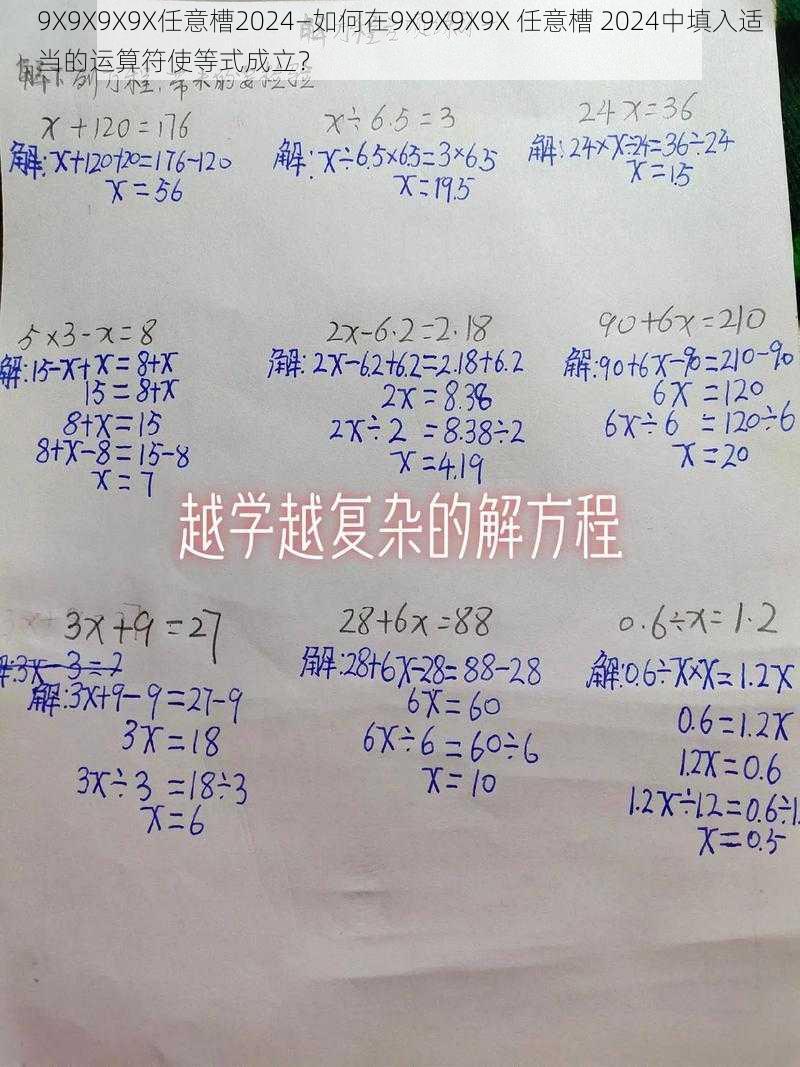 9X9X9X9X任意槽2024—如何在9X9X9X9X 任意槽 2024中填入适
当的运算符使等式成立？
x+120=176
解:x+120+20=176-120
x=56
x÷6.5=3
解:x÷6.5×6.5=3×6.5
x=19.5
24x=36
解:24×x÷24=36÷24
x=1.5
5×3-x=8
解:15-x+x=8+x
15=8+x
8+x=15
8+x-8=15-8
x=7
2x-6.2=2.18
解:2x-6.2+6.2=2.18+6.2
2x=8.38
2x÷2=8.38÷2
x=4.19
90+6x=210
解:90+6x-90=210-90
6x=120
6x÷6=120÷6
x=20
越学越复杂的解方程
3x+9=27
解:3x-3=2
解:3x+9-9=27-9
3x=18
3x÷3=18÷3
x=6
28+6x=88
解:28+6x-28=88-28
6x=60
6x÷6=60÷6
x=10
0.6÷x=1.2
解:0.6÷x×x=1.2x
0.6=1.2x
1.2x=0.6
1.2x÷1.2=0.6÷1.
x=0.5